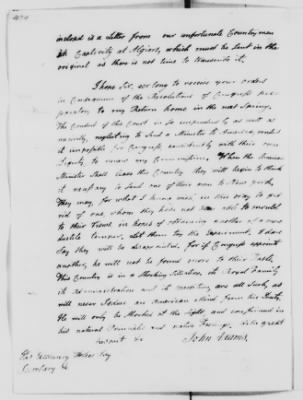 inclosed is a Letter from our unfortunate Countrymen
in Captivity at Algiers, which must be sent in the
original as there is not time to transcribe it.
I hope Sir, ere long to receive your orders
in Consequence of the Resolutions of Congress
to my Return home in the next Spring.
The Conduct of this Court in so
neglecting to send a Minister to America, makes
it impossible for Congress consistently with their own
Dignity to renew my Commission. When the American
Minister shall leave this Country they will begin to think
it necessary to send one of their own to New York,
They may, for what I know wish in this way to get
rid of one, whom they have not been able to
to their Views in hopes of obtaining another of a more
ductile temper. Let them try the Experiment. I dare
say they will be disappointed, for if Congress appoint
another, he will not be found more to their Taste,
This Country is in a Situation, its Royal Family
its Administration and its are all such, as
will never seduce an American mind from his Duty.
He will only be shocked at the sight, and confirmed in
his natural Principles and native Feelings. with great
John Adams.
His Excellency John Jay
Secretary